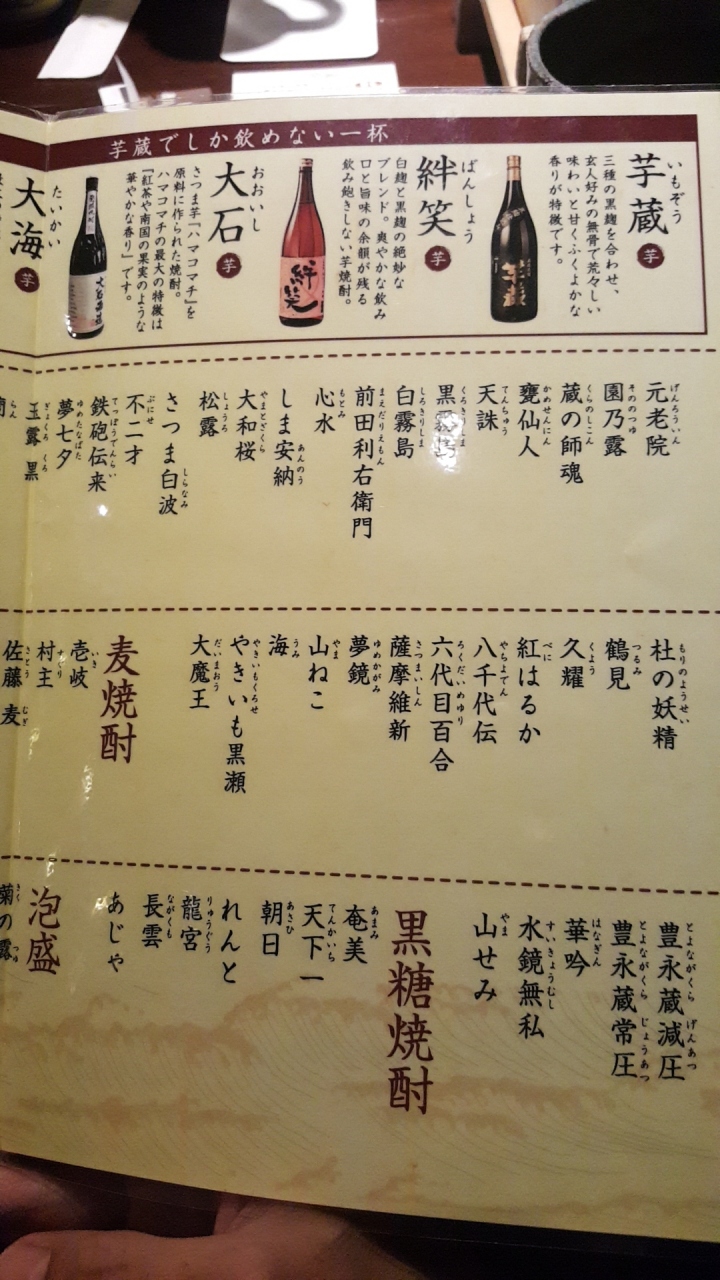 芋蔵でしか飲めない一杯
いもぞう
芋蔵 芋
三種の黒麹を合わせ、
玄人好みの無骨で荒々しい
味わいと甘くふくよかな
香りが特徴です。
ばんしょう
絆笑 芋
白麹と黒麹の絶妙な
ブレンド。爽やかな飲み
口と旨味の余韻が残る
飲み飽きしない芋焼酎。
おおいし
大石 芋
さつま芋「ハマコマチ」を
原料に作られた焼酎。
ハマコマチの最大の特徴は
「紅茶や南国の果実のような
華やかな香り」です。
たいかい
大海 芋
げんろういん
元老院
そののつゆ
園乃露
くらのしこん
蔵の師魂
かめせんにん
甕仙人
てんちゅう
天誅
くろきりしま
黒霧島
しろきりしま
白霧島
まえだりえもん
前田利右衛門
もとみ
心水
あんのう
しま安納
やまとざくら
大和桜
しょうろ
松露
しらなみ
さつま白波
ぶにせ
不二才
てっぽうでんらい
鉄砲伝来
ゆめたなばた
夢七夕
ぎょくろ くろ
玉露 黒
らん
もりのようせい
杜の妖精
つるみ
鶴見
くよう
久耀
べに
紅はるか
やちよでん
八千代伝
ろくだいめゆり
六代目百合
さつまいしん
薩摩維新
ゆめかがみ
夢鏡
やま
山ねこ
うみ
海
やきいもくろせ
やきいも黒瀬
だいまおう
大魔王
麦焼酎
いき
壱岐
すぐり
村主
さとう むぎ
佐藤 麦
とよながくら げんあつ
豊永蔵減圧
とよながくら じょうあつ
豊永蔵常圧
はなぎん
華吟
すいきょうむし
水鏡無私
やま
山せみ
黒糖焼酎
あまみ
奄美
てんかいち
天下一
あさひ
朝日
れんと
りゅうぐう
龍宮
ながくも
長雲
あじゃ
泡盛
きく つゆ
菊の露